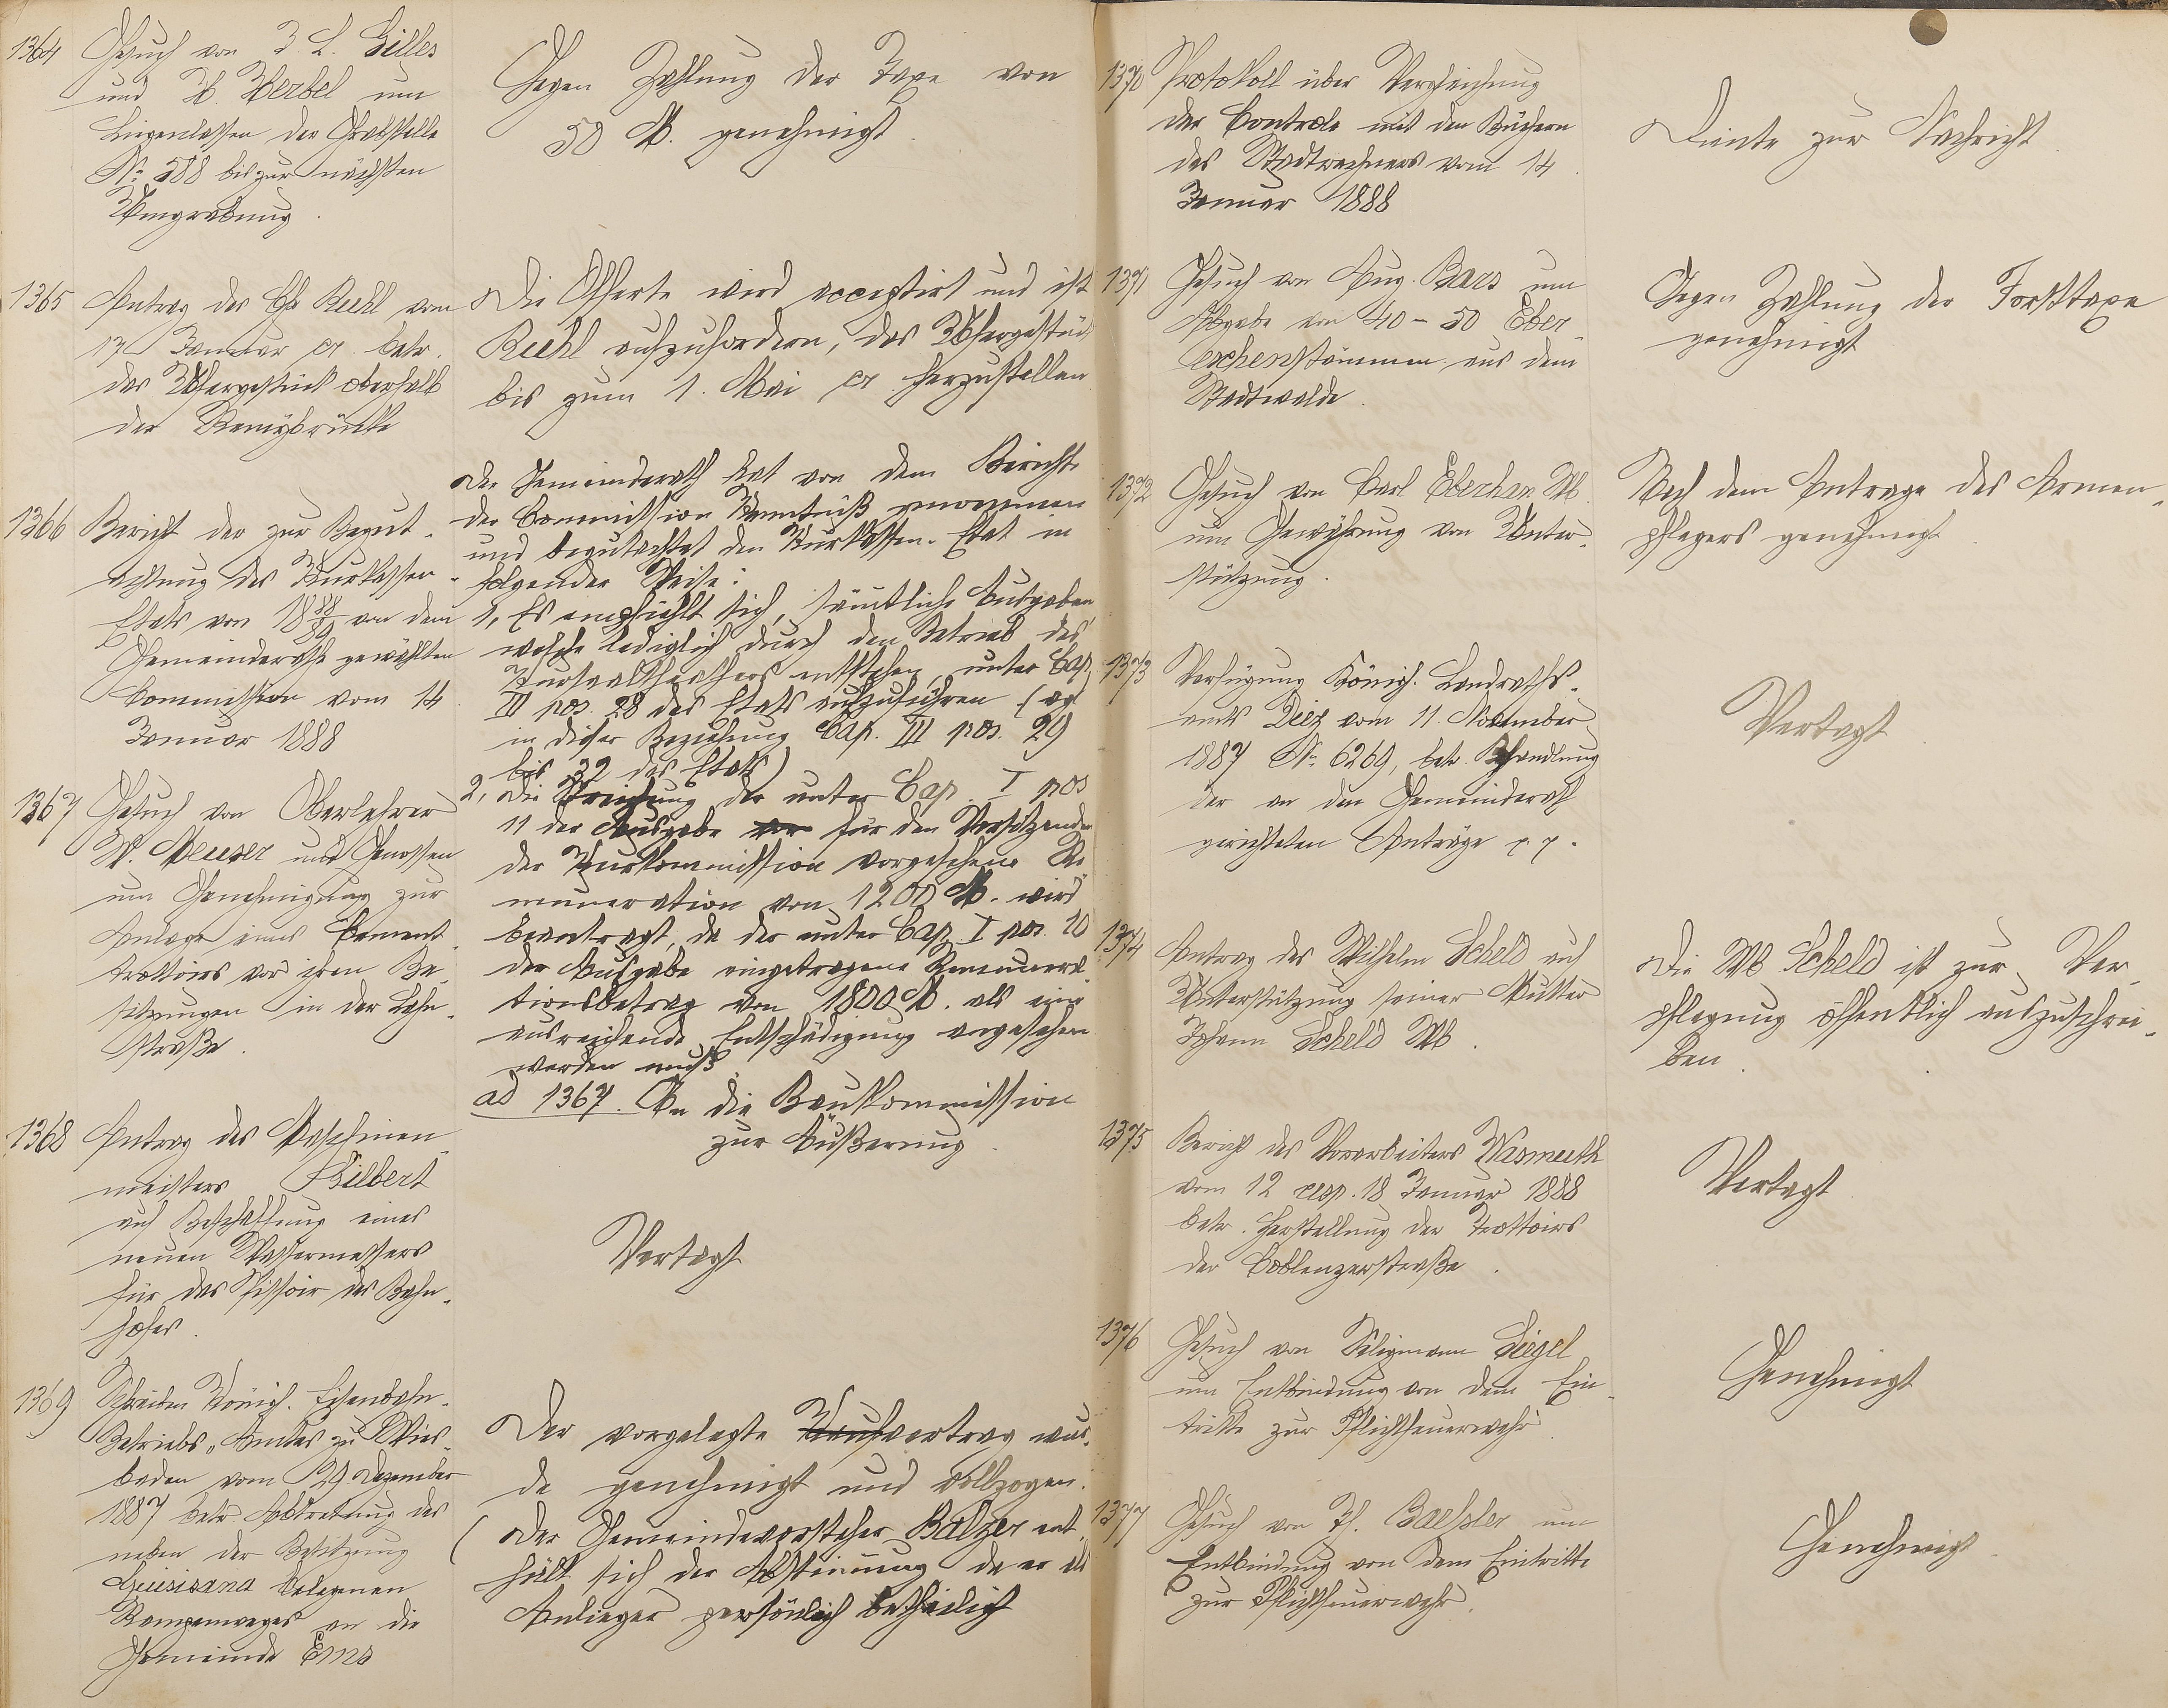 1364 Gesuch von J. L. Gilles
und H. Werbel um
Liegenlassen der Grabstelle
No 588 bis zur nächsten
Umgrabung.
Gegen Zahlung der Taxe von
50 M. genehmigt.
1365 Antrag des Chr Riehl vom
17 Januar cr. betr.
das Ufergestück oberhalb
der Remybrücke
Die Offerte wird acceptirt und ist
Riehl aufzufordern, das Ufergestück
bis zum 1. Mai cr herzustellen
1366 Bericht der zur Begut-
achtung des Kurkassen-
Etats von 18 88/89 von dem
Gemeinderathe gewählten
Commission vom 14
Januar 1888
Der Gemeinderath hat von dem Berichte
der Commission Kenntniß genommen
und begutachtet den Kurkassen-Etat in
folgender Weise:
1, Es empfiehlt sich, sämtliche Ausgaben
welche lediglich durch den Betrieb des
Kursaaltheathers entstehen, unter Cap.
III pos. 28 des Etats aufzuführen (
in dieser Beziehung Cap. III pos. 29
bis 32 des Etats)
2, Die Streichung der unter Cap. I pos
11 der Ausgabe für den Vorsitzenden
der Kurkommission vorgesehene Re-
muneration von 1200 M. wird
beantragt, da der unter Cap I pos. 10
der Ausgabe eingetragene Remunera-
tionsbetrag von 1800 M. als eine
ausreichende Entschädigung angesehen
werden muß.
1367 Gesuch von Oberlehrer
W. Meuser und Genossen
um Genehmigung zur
Anlage eines Cement-
trottoirs vor ihren Be-
sitzungen in der Lahn-
straße.
ad 1367. An die Baukommission
zur Äußerung.
1368 Antrag des Maschinen-
meisters Hilbert
auf Beschaffung eines
neuen Wassermessers
für das Pissoir des Bahn-
hofes.
Vertagt
1369 Schreiben Königl. Eisenbahn-
Betriebs-Amtes zu Wies-
baden vom 29. Dezember
1887 betr. Abtretung des
neben der Besitzung
Quisisana belegenen
Rampenweges an die
Gemeinde Ems
Der vorgelegte Kaufvertrag wur-
de genehmigt und vollzogen.
(Der Gemeindevorsteher Balzer ent-
hält sich der Abstimmung da er als
Anlieger persönlich betheiligt
1370 Protokoll über Vergleichung
der Controle mit den Büchern
des Stadtrechners vom 14
Januar 1888
Diente zur Nachricht.
1371 Gesuch von Aug. Bars um
Abgabe von 40-50 Eber-
eschenstämmen aus dem
Stadtwalde.
Gegen Zahlung der Forsttaxe
genehmigt
1372 Gesuch von Carl Eberhan Wb.
um Gewährung von Unter-
stützung.
Nach dem Antrage des Armen-
pflegers genehmigt
1373 Verfügung Königl. Landraths-
amts Diez vom 11. November
1887 No 6269, betr. Behandlung
der an den Gemeinderath
gerichteten Anträge p. p.
Vertagt
1374 Antrag des Wilhelm Scheld auf
Unterstützung seiner Mutter
Johann Scheld Wb.
Die Wb Scheld ist zur Ver-
pflegung öffentlich auszuschrei-
ben.
1375 Bericht des Vorarbeiters Wasmuth
vom 12 resp. 18 Januar 1888
betr. Herstellung der Trottoirs
der Coblenzerstraße.
Vertagt
1376 Gesuch von Seligmann Siegel
um Entbindung von dem Ein-
tritte zur Pflichtfeuerwehr
Genehmigt
1377 Gesuch von Th. Baeßler um
Entbindung von dem Eintritte
zur Pflichtfeuerwehr.
Genehmigt